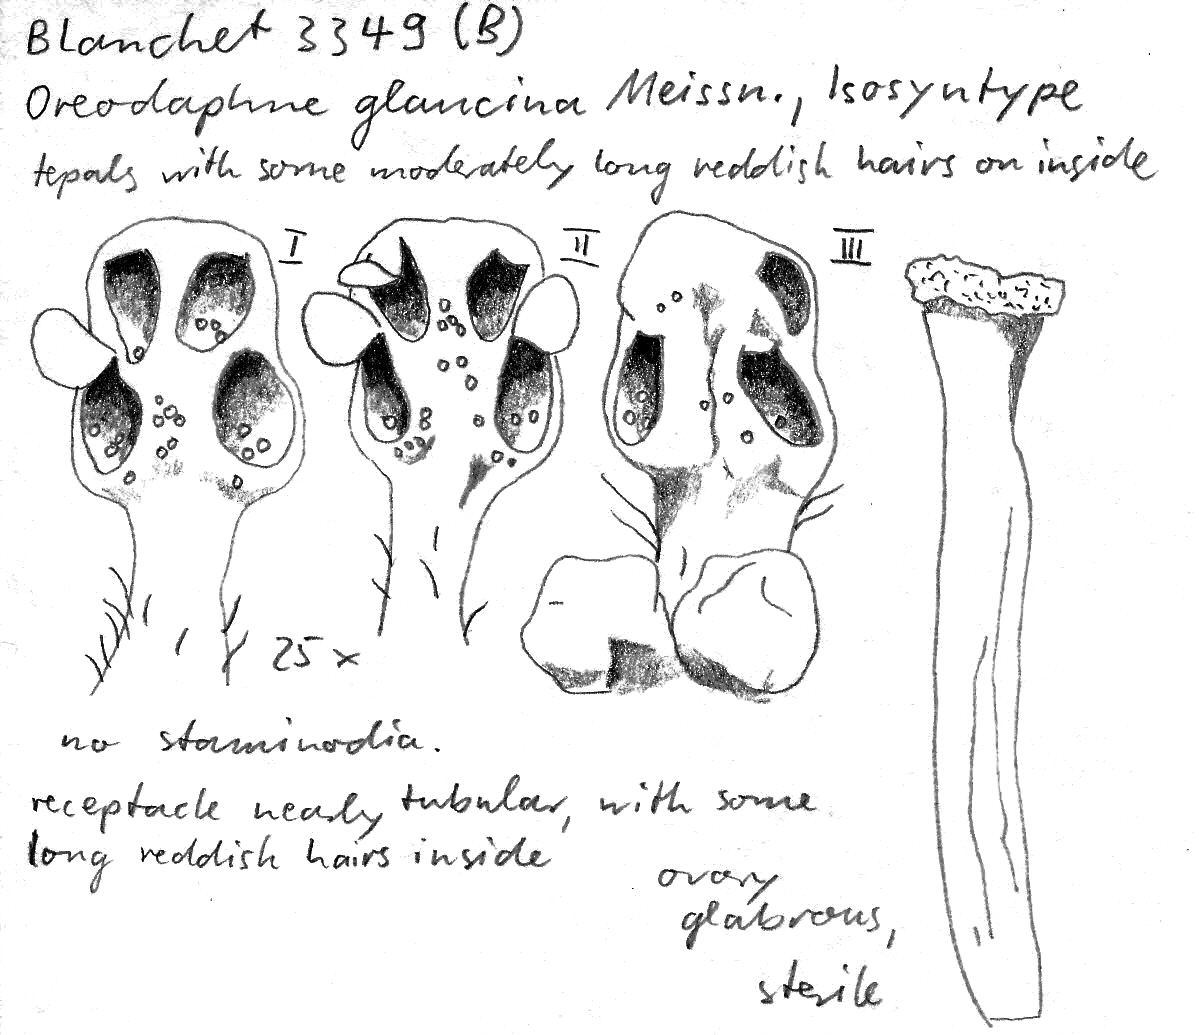 Blanchet 3349 (B)
Oreodaphne glaucina Meissn., Isosyntype
tepals with some moderately long reddish hairs on inside
I II III
25 x
no staminodia.
receptacle nearly tubular, with some
long reddish hairs inside
ovary
glabrous,
sterile